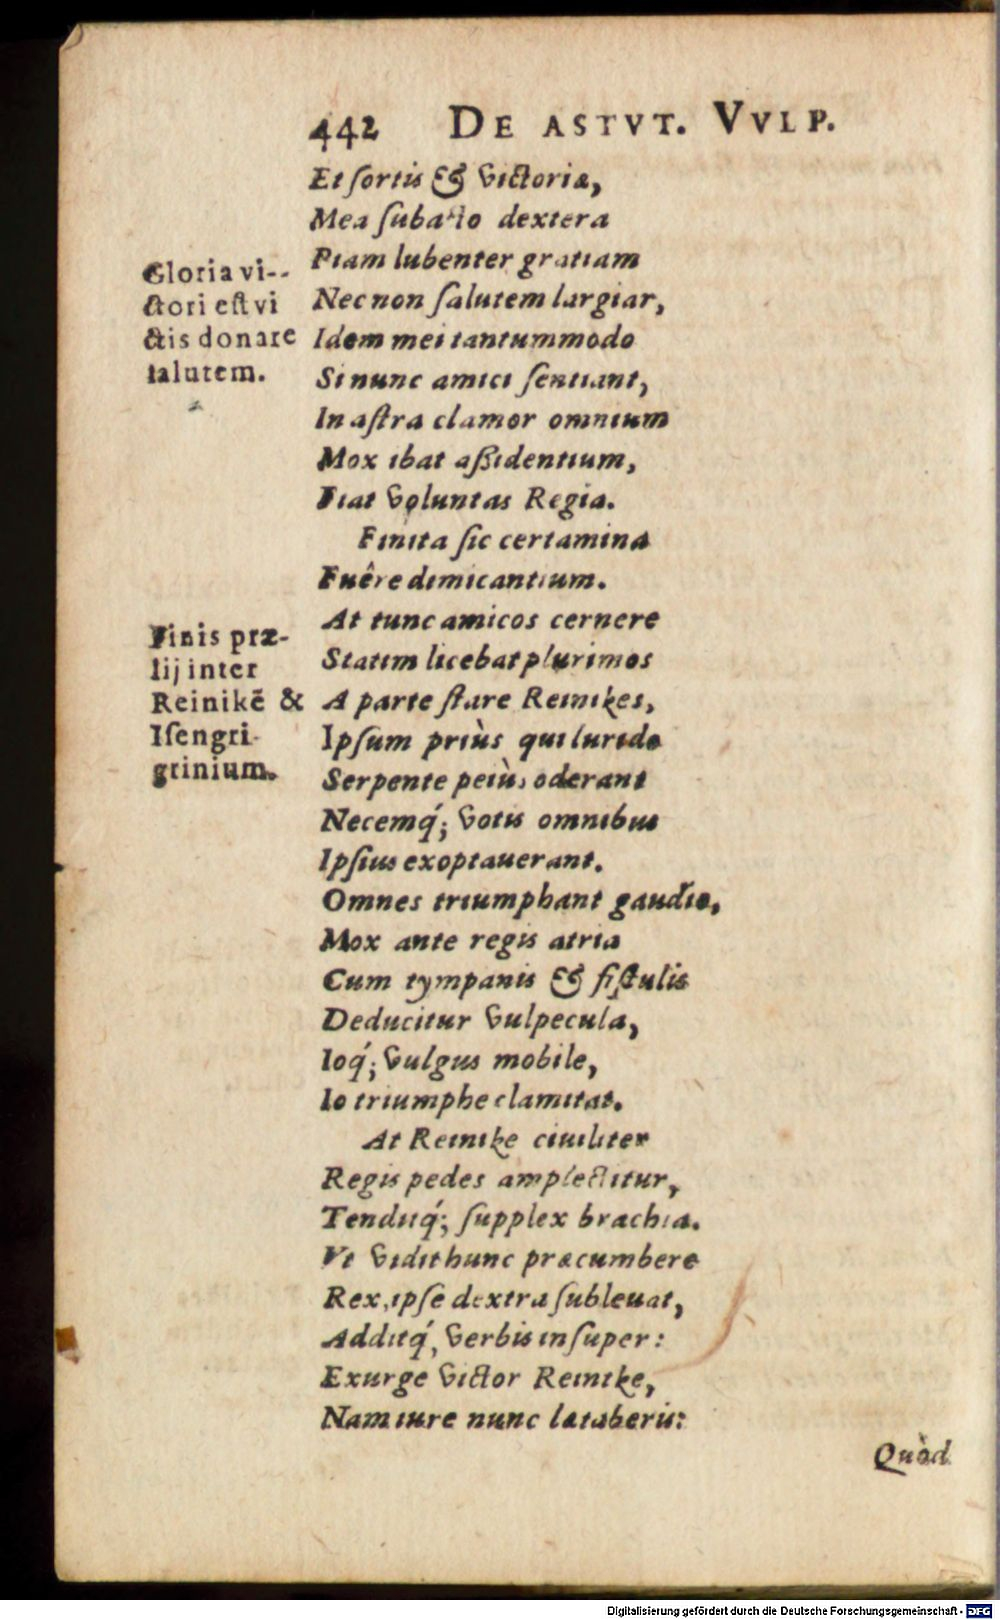 442 DE ASTVT. VVLP.
Et ſortis & victoriæ,
Mea ſubacto dextera
Piam lubenter gratiam
Nec non ſalutem largiar,
Idem mei tantummodo
Si nunc amici ſentiant,
In aſtra clamor omnium
Mox ibat aßidentium,
Fiat voluntas Regia.
Finita ſic certamina
Fuêre dimicantium.
At tunc amicos cernere
Statim licebat plurimos
A parte ſtare Reinikes,
Ipſum priùs qui lurido
Serpente peiùs oderant
Necemq́; votis omnibus
Ipſius exoptauerant.
Omnes triumphant gaudio,
Mox ante regis atria
Cum tympanis & fiſtulis
Deducitur vulpecula,
Ioq́; vulgus mobile,
Io triumphe clamitat.
At Reinike ciuiliter
Regis pedes amplectitur,
Tenditq́; ſupplex brachia.
Vt vidit hunc præcumbere
Rex, ipſe dextra ſubleuat,
Additq́, verbis inſuper:
Exurge victor Reinike,
Nam iure nunc lætaberis:
Quòd
Gloria vi--
ctori eſt vi
ctis donare
ſalutem.
Finis præ-
lij inter
Reinikẽ &
Iſengri-
grinium.
Digitalisierung gefördert durch die Deutsche Forschungsgemeinschaft - DFG